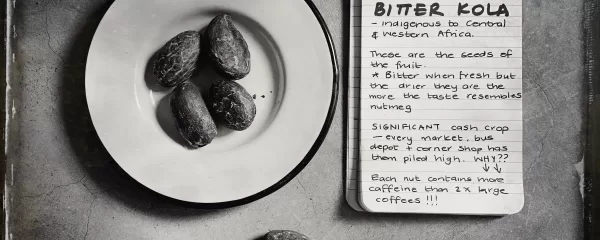 BITTER KOLA
- Indigenous to Central
& Western Africa.
These are the seeds of
the fruit.
* Bitter when fresh but
the drier they are the
more the taste resembles
nutmeg
SIGNIFICANT cash crop
- every market, bus
depot + corner shop has
them piled high. WHY??
↓↓
Each nut contains more
caffeine than 2x large
coffees !!!